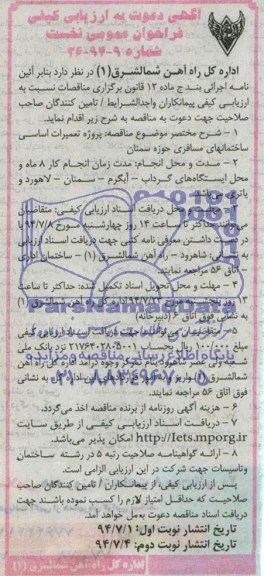 آگهی دعوت به ارزیابی کیفی
فراخوان عمومی نخست
شماره ۹-۹۴-۲۶
اداره کل راه آهن شمالشرق(۱) در نظر دارد بنابر آئین
نامه اجرائی بند ج ماده ۱۲ قانون برگزاری مناقصات نسبت به
ارزیابی کیفی پیمانکاران واجدالشرایط / تامین کنندگان صاحب
صلاحیت جهت دعوت به مناقصه به شرح زیر اقدام نماید.
۱ - شرح مختصر موضوع مناقصه: پروژه تعمیرات اساسی
ساختمانهای مسافری حوزه سمنان
۲ - مدت و محل انجام: مدت زمان انجام کار ۸ ماه و
محل ایستگاههای گرداب - آبگرم - سمنان - لاهورد و
محل دریافت اسناد ارزیابی کیفی: متقاضیان
حداکثر تا ساعت ۱۴ روز چهارشنبه مورخ ۹۴/۷/۸ با
در دست داشتن معرفی نامه کتبی جهت دریافت اسناد ارزیابی
به نشانی: شاهرود - راه آهن شمالشرق (۱) - ساختمان اداری
اتاق ۵۶ مراجعه نمایند.
۴ - مهلت و محل تحویل اسناد تکمیل شده: حداکثر تا ساعت
راه آهن شمالشرق (۱)
به نشانی فوق اتاق ۶ (دبیرخانه)
جهت دریافت اسناد ارزیابی کیفی
مبلغ ۱۰۰/۰۰۰ ریال بحساب نزد بانک ملی
پایگاه اطلاع رسانی مناقصه و مزایده
۰۲۱-۸۸۳۴۹۶۷۰-۵
ParsNamadData
فوق اتاق ۵۶ مراجعه نمایند.
۶ - هزینه آگهی روزنامه از برنده مناقصه اخذ می‌گردد.
۷ - دریافت اسناد ارزیابی کیفی از طریق سایت
http://Iets.mporg.ir امکان پذیر می‌باشد.
۸ - ارائه گواهینامه صلاحیت رتبه ۵ در رشته ساختمان
وتاسیسات جهت شرکت در این ارزیابی الزامی است.
پس از ارزیابی کیفی، از پیمانکاران / تامین کنندگان صاحب
صلاحیت که حداقل امتیاز لازم را کسب نموده باشند جهت
دریافت اسناد مناقصه دعوت به‌عمل خواهد آمد.
تاریخ انتشار نوبت اول: ۹۴/۷/۱
تاریخ انتشار نوبت دوم: ۹۴/۷/۴
اداره کل راه آهن شمالشرق (۱)